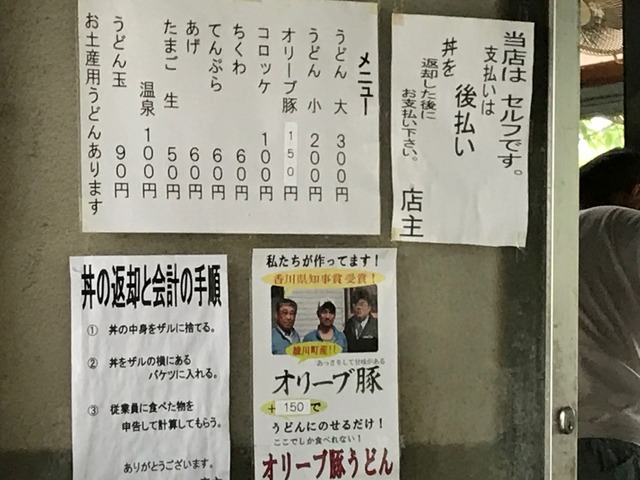 メニュー
うどん 大 300円
うどん 小 200円
オリーブ豚 150円
コロッケ 100円
ちくわ 60円
てんぷら 60円
あげ 60円
たまご 生 50円
温泉 100円
うどん玉 90円
お土産用うどんあります
当店は セルフです。
支払いは
後払い
丼を
返却した後に
お支払い下さい。
店主
丼の返却と会計の手順
① 丼の中身をザルに捨てる。
② 丼をザルの横にある
バケツに入れる。
③ 従業員に食べた物を
申告して計算してもらう。
ありがとうございます。
私たちが作ってます!
香川県知事賞受賞!
綾川町産!!
あっさりして甘味がある
オリーブ豚
+150で
うどんにのせるだけ!
ここでしか食べれない!
オリーブ豚うどん